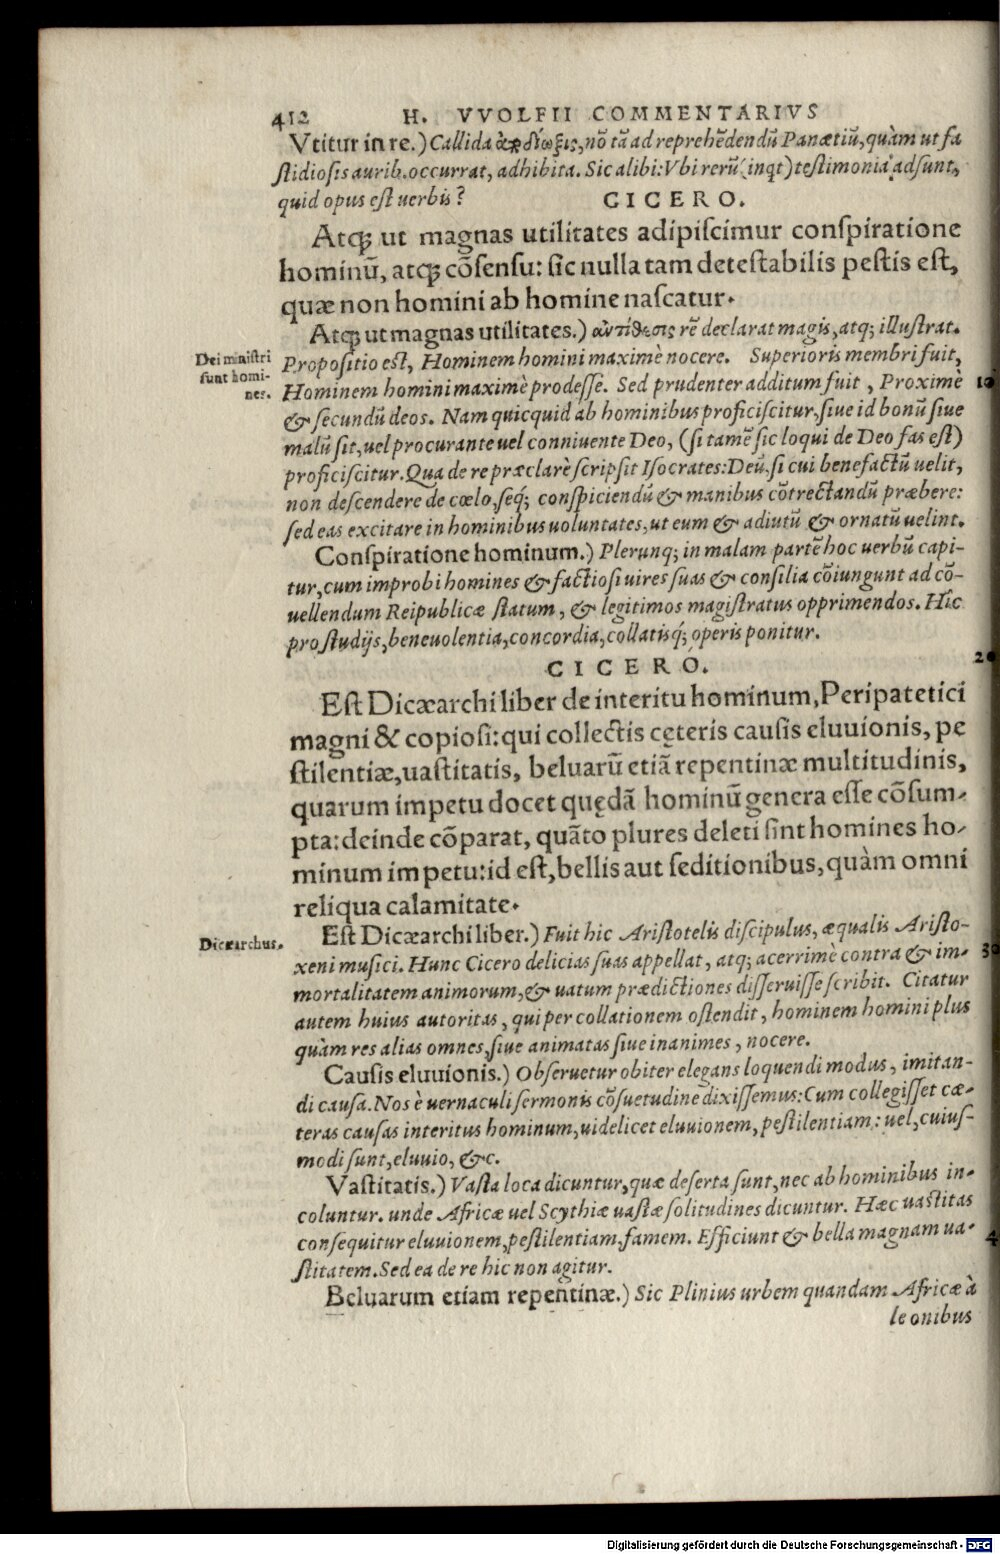 412 H. VVOLFII COMMENTARIVS
Vtitur in re.) Callida nõ tã ad reprehẽdendũ Panætiũ, quàm ut fa
ſtidioſis aurib. occurrat, adhibita. Sic alibi: Vbi rerũ (inqt) teſtimonia adſunt,
quid opus eſt uerbis?
CICERO.
Atq; ut magnas utilitates adipiſcimur conſpiratione
hominũ, atq; cõſenſu: ſic nulla tam deteſtabilis peſtis eſt,
quæ non homini ab homine naſcatur.
Atq; ut magnas utilitates.) ἀντίθεσις rẽ declarat magis, atq; illuſtrat.
Dei miniſtri
ſunt homi-
nes.
Propoſitio eſt, Hominem homini maximè nocere. Superioris membri fuit,
Hominem homini maximè prodeſſe. Sed prudenter additum fuit, Proximè 10
& ſecundũ deos. Nam quicquid ab hominibus proficiſcitur, ſiue id bonũ ſiue
malũ ſit, uel procurante uel conniuente Deo, (ſi tamẽ ſic loqui de Deo fas eſt)
proficiſcitur. Qua de re præclarè ſcripſit Iſocrates: Deũ, ſi cui benefactũ uelit,
non deſcendere de cœlo, ſeq́; conſpiciendũ & manibus cõtrectandũ præbere:
ſed eas excitare in hominibus uoluntates, ut eum & adiutũ & ornatũ uelint.
Conſpiratione hominum.) Plerunq; in malam partẽ hoc uerbũ capi-
tur, cum improbi homines & factioſi uires ſuas & conſilia cõiungunt ad cõ-
uellendum Reipublicæ ſtatum, & legitimos magiſtratus opprimendos. Hîc
pro ſtudijs, beneuolentia, concordia, collatisq́; operis ponitur.
CICERO. 20
Eſt Dicæarchi liber de interitu hominum, Peripatetici
magni & copioſi: qui collectis cęteris cauſis eluuionis, pe
ſtilentiæ, uaſtitatis, beluarũ etiã repentinæ multitudinis,
quarum impetu docet quędã hominũ genera eſſe cõſum-
pta: deinde cõparat, quãto plures deleti ſint homines ho-
minum impetu: id eſt, bellis aut ſeditionibus, quàm omni
reliqua calamitate.
Dicæarchus.
Eſt Dicæarchi liber.) Fuit hic Ariſtotelis diſcipulus, æqualis Ariſto-
xeni muſici. Hunc Cicero delicias ſuas appellat, atq; acerrimè contra & im- 30
mortalitatem animorum, & uatum prædictiones diſſeruiſſe ſcribit. Citatur
autem huius autoritas, qui per collationem oſtendit, hominem homini plus
quàm res alias omnes, ſiue animatas ſiue inanimes, nocere.
Cauſis eluuionis.) Obſeruetur obiter elegans loquendi modus, imitan-
di cauſa. Nos è uernaculi ſermonis cõſuetudine dixiſſemus: Cum collegiſſet cæ-
teras cauſas interitus hominum, uidelicet eluuionem, peſtilentiam: uel, cuiuſ-
modi ſunt, eluuio, &c.
Vaſtitatis.) Vaſta loca dicuntur, quæ deſerta ſunt, nec ab hominibus in-
coluntur. unde Africæ uel Scythiæ uaſtæ ſolitudines dicuntur. Hæc uaſtitas
conſequitur eluuionem, peſtilentiam, famem. Efficiunt & bella magnam ua- 4
ſtitatem. Sed ea de re hic non agitur.
Beluarum etiam repentinæ.) Sic Plinius urbem quandam Africæ à
leonibus
Digitalisierung gefördert durch die Deutsche Forschungsgemeinschaft - DFG